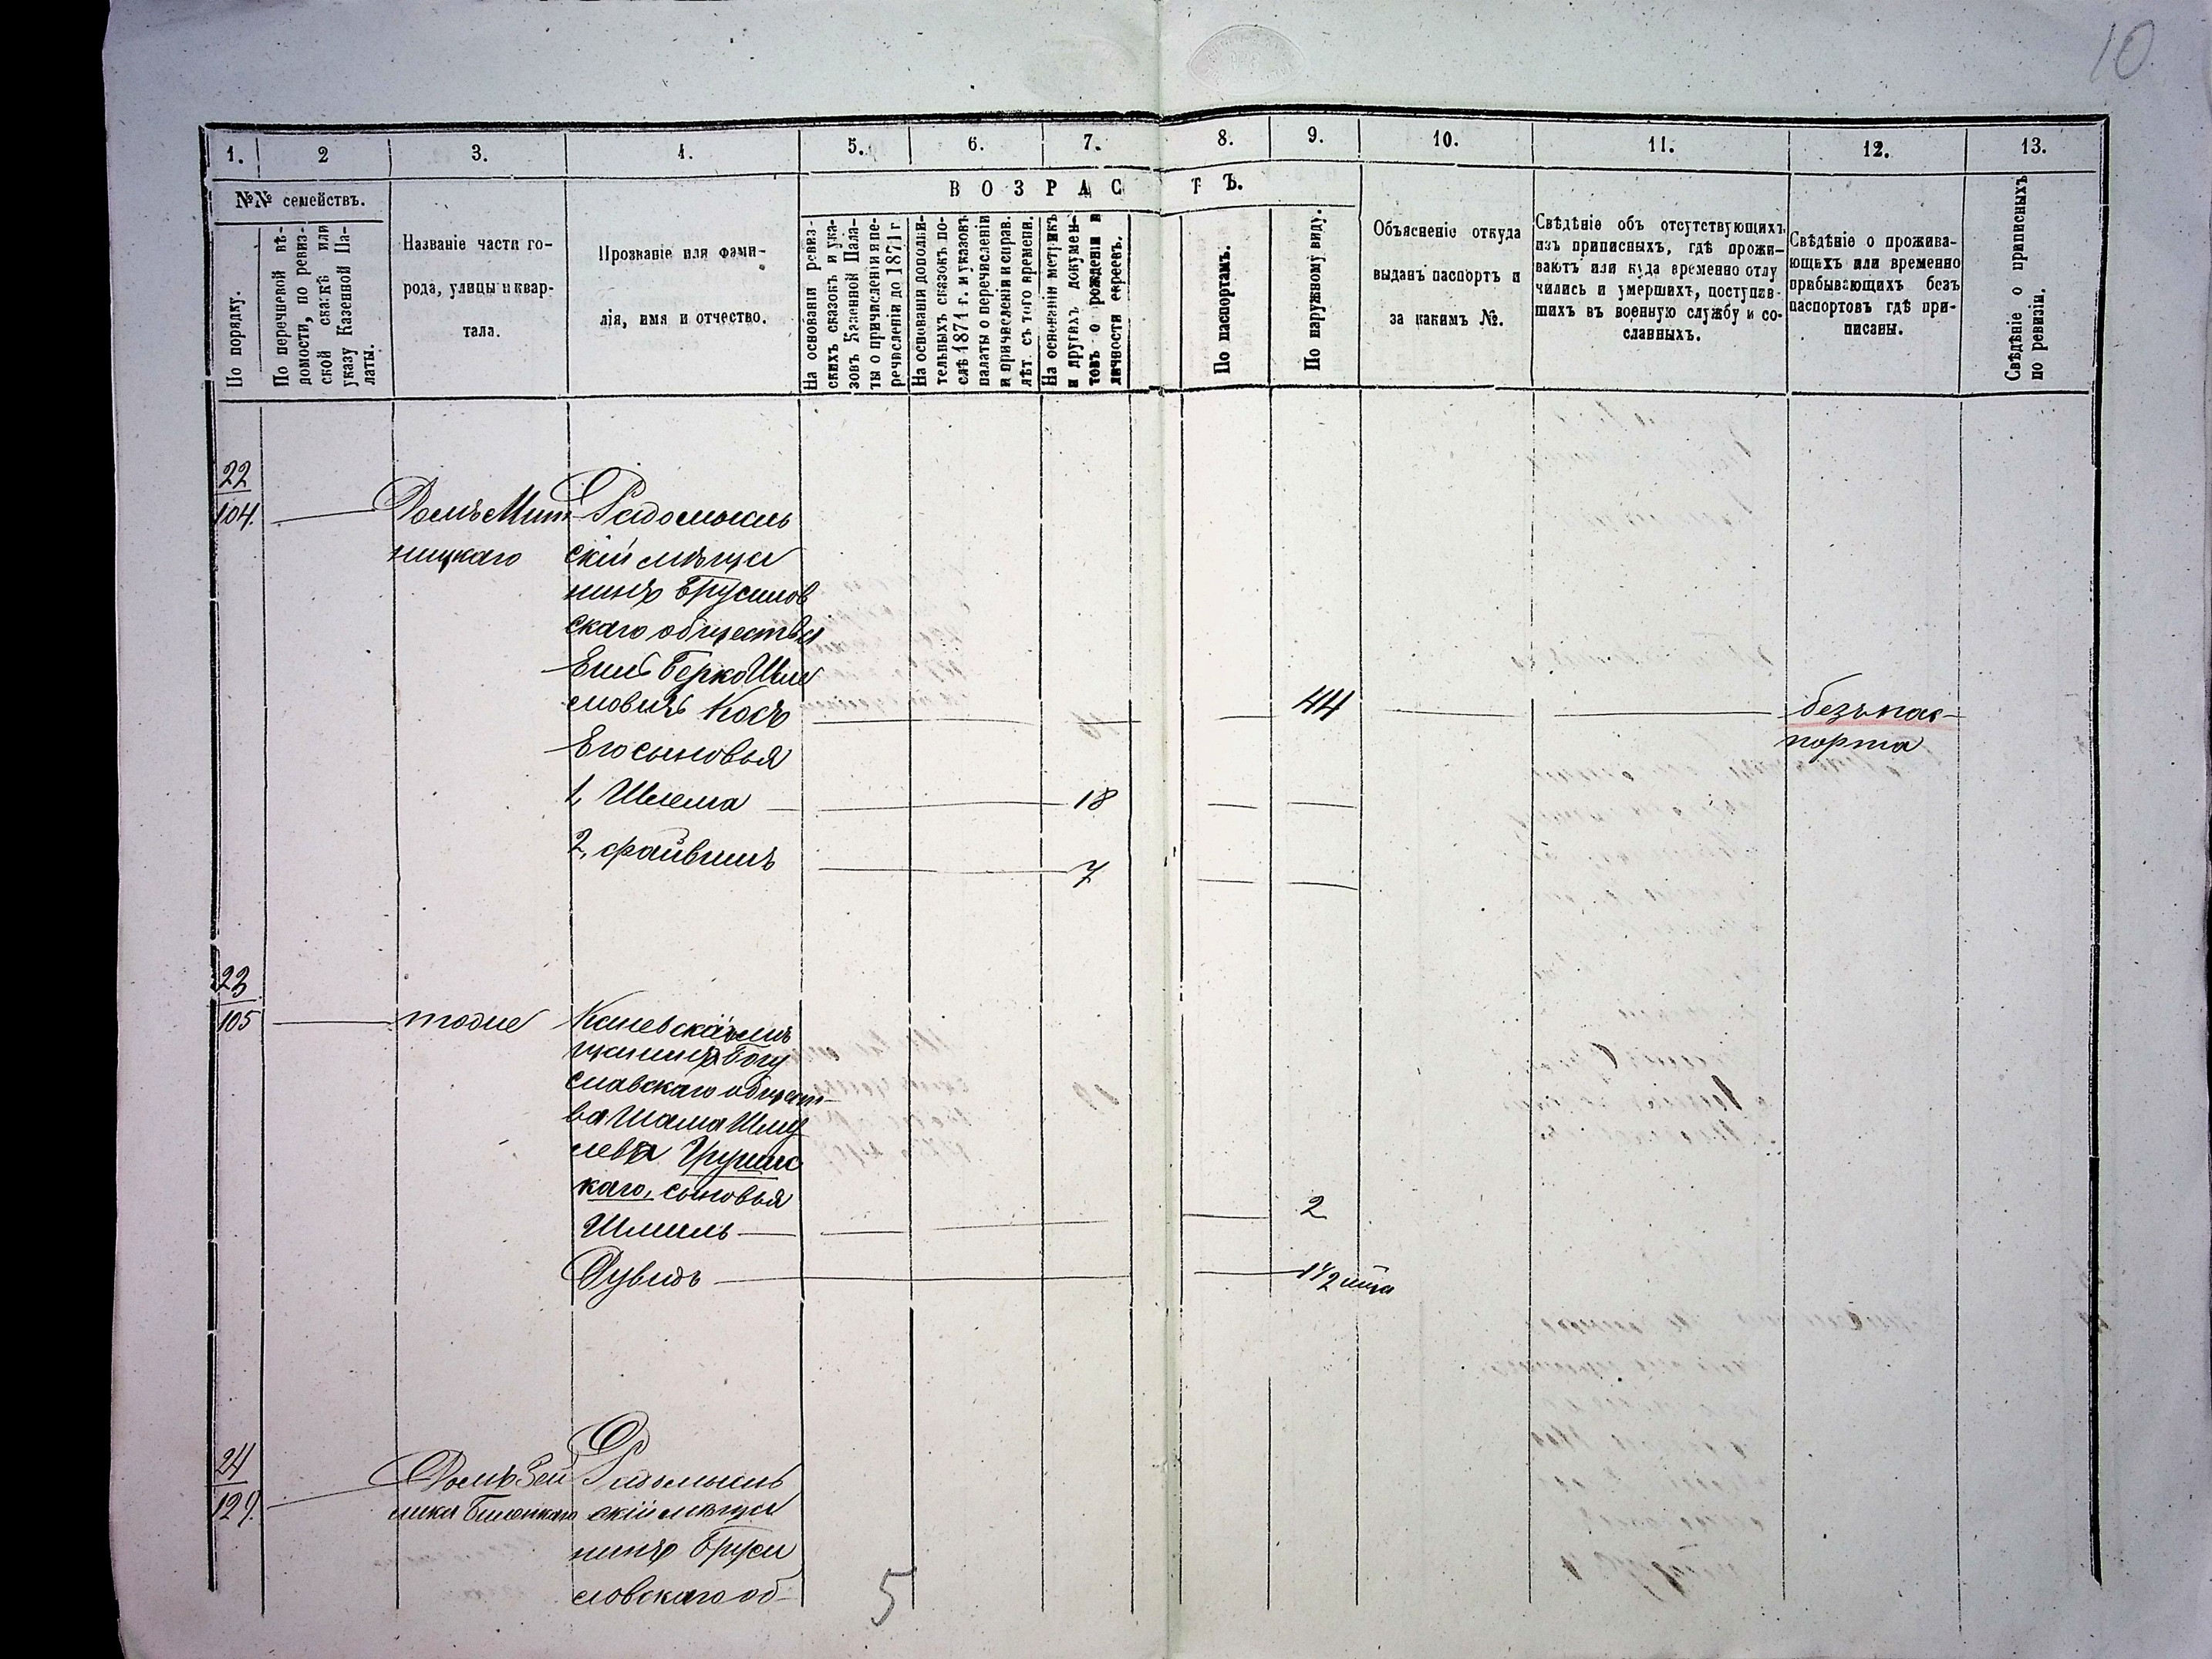 10
1. 2 3. 4. 5. 6. 7. 8. 9. 10. 11. 12. 13.
№№ семействъ.
ВОЗРАСТЪ.
По порядку.
По перечневой вѣ-
домости, по ревиз-
ской сказкѣ или
указу Казенной Па-
латы.
Названіе части го-
рода, улицы и квар-
тала.
Прозваніе или фами-
лія, имя и отчество.
На основаніи ревиз-
скихъ сказокъ и ука-
зовъ Казенной Пала-
ты о причисленіи и пе-
речисленіи до 1871 г.
На основаніи дополни-
тельныхъ сказокъ по-
слѣ 1871 г. и указовъ
палаты о перечисленіи
и причисленіи и справ.
лѣт. съ того времени.
На основаніи метрикъ
и другихъ докумен-
товъ о рожденіи и
личности евреевъ.
По паспортамъ.
По наружному виду.
Объясненіе откуда
выданъ паспортъ и
за какимъ №.
Свѣдѣніе объ отсутствующихъ
изъ приписныхъ, гдѣ прожи-
ваютъ или куда временно отлу
чились и умершихъ, поступив-
шихъ въ военную службу и со-
сланныхъ.
Свѣдѣніе о прожива-
ющихъ или временно
прибывающихъ безъ
паспортовъ гдѣ при-
писаны.
Свѣдѣніе о приписныхъ
по ревизіи.
22
104. Домъ
ницкаго
Радомысль
скій мѣща
нинъ Брусилов
скаго общества
Берко Шле
мовичъ Косъ 44 безъ пас-
порта
Его сыновья
1, Шлема 18
2, Файвишъ 7
23
105 тоже
Каневскаго мѣ
щанина Богу
славскаго общест-
ва Шмуля
сыновья
Шмиль 2
Дувидъ 1 1/2 лѣта
24
Домъ Зей
Радомысль
скій мѣща
нинъ Бруси
ловскаго об-
5